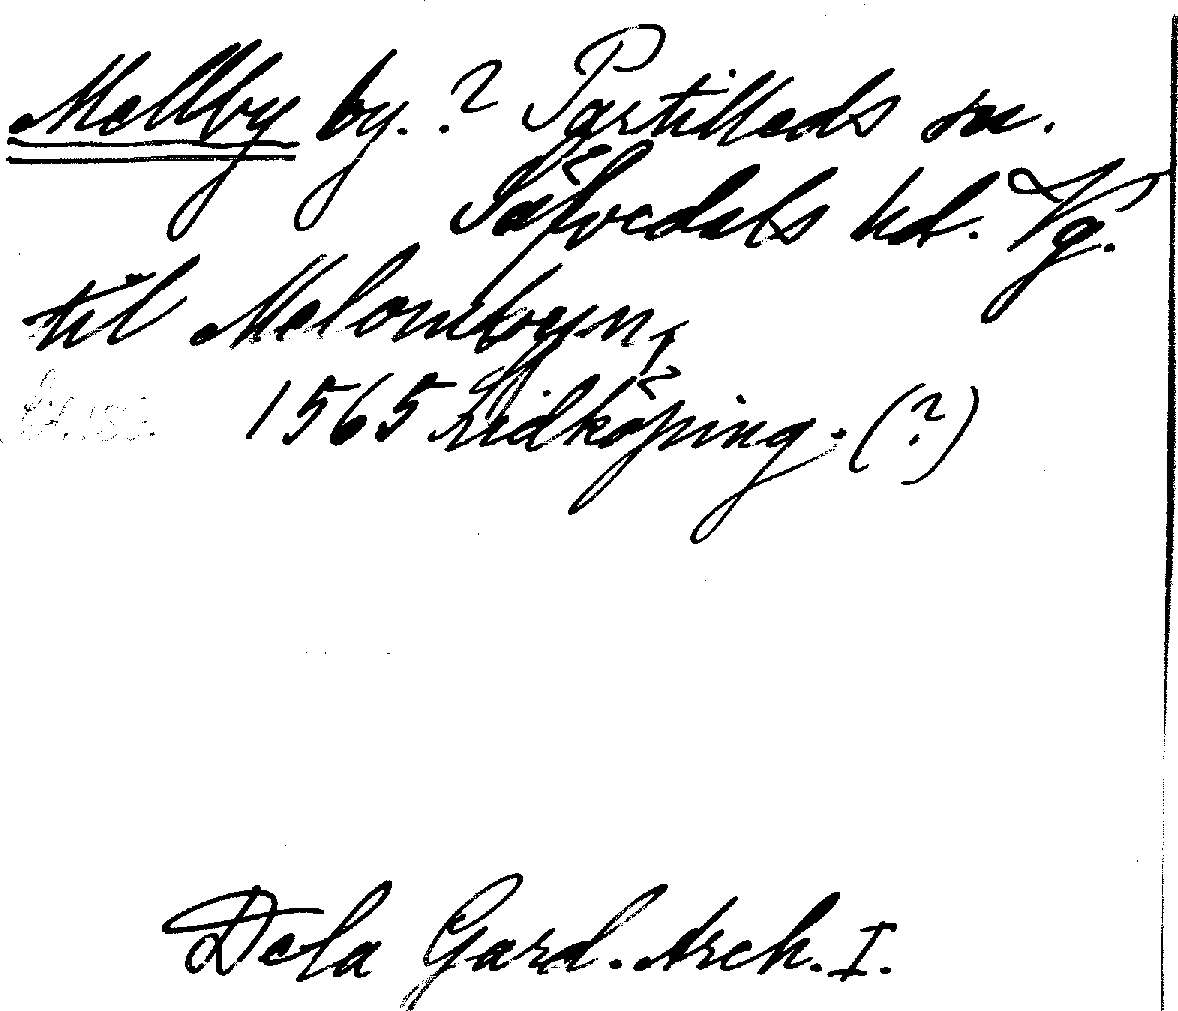 Mellby by. ? Partilleds sn.
Säfvedals hd. Vg.
til Melombyn,
1565 Lidköping. (?)
Dela Gard. Arch. I.